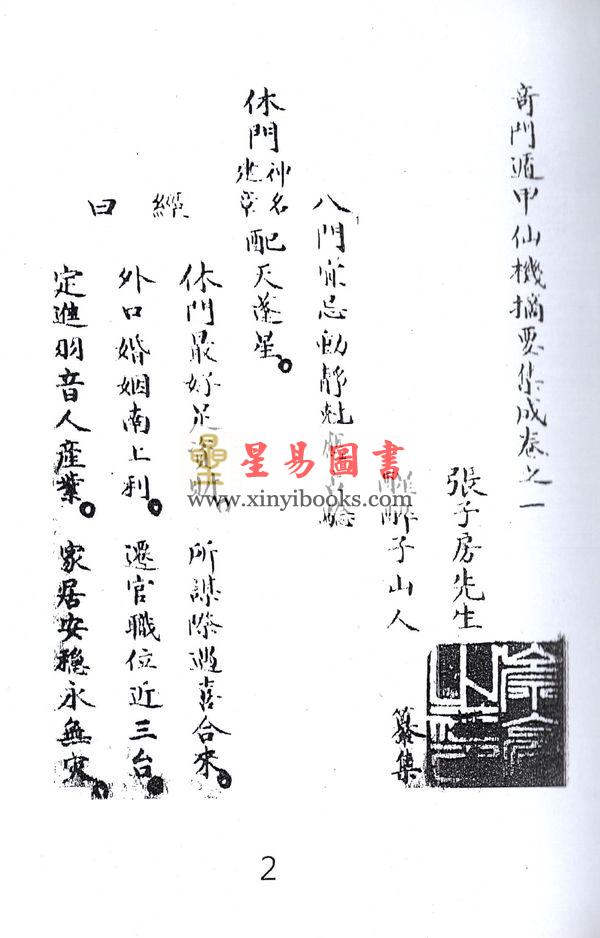 奇門遁甲仙機摘要集成卷之一
張子房先生
醉子山人 纂集
八門宜忌動靜 驗
休門 神名 配天蓬星。
經曰
休門最好足 所謀際遇喜合來。
外口婚姻南上利。 遷官職位近三台。
定進羽音人產業。 家居安穩永無災。
星易圖書
www.xinyibooks.com
2